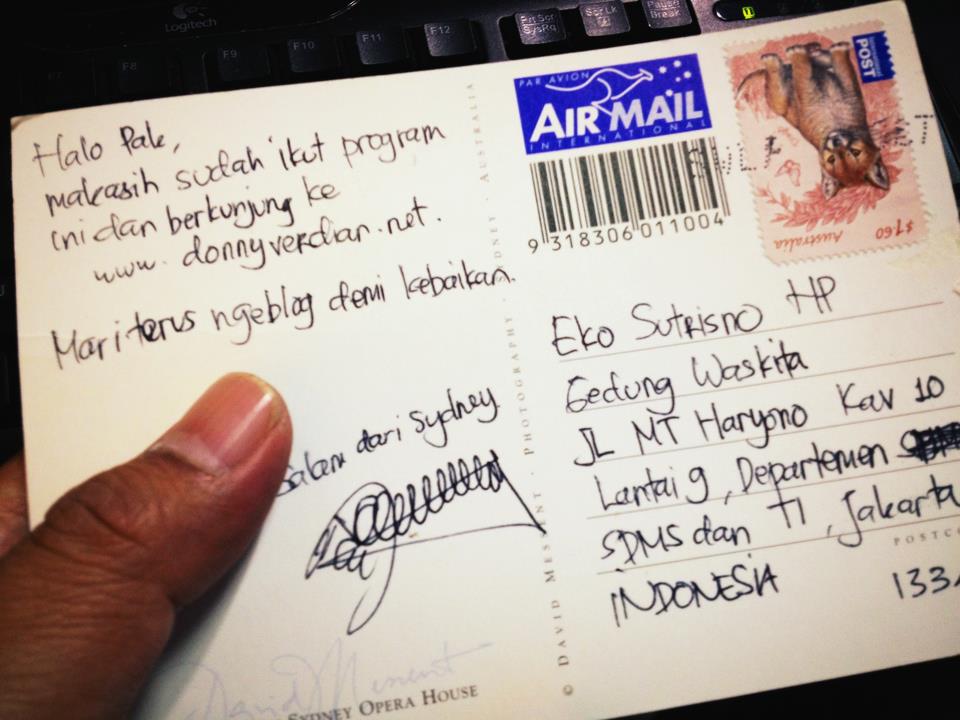 Logitech
F7
F8
F9
F10
F11
F12
Prt Scr
SysRq
Scr Lk
Pause
Break
Halo Pak,
makasih sudah ikut program
ini dan berkunjung ke
www.donnyverdian.net.
Mari terus ngeblog demi kebaikan.
Salam dari sydney
SYDNEY OPERA HOUSE
© DAVID MESSENT · PHOTOGRAPHY · SYDNEY · AUSTRALIA
PAR AVION
AIR MAIL
INTERNATIONAL
9 318306 011004
INTERNATIONAL
POST
Australia
$1.60
Eko Sutrisno HP
Gedung Waskita
JL MT Haryono Kav 10
Lantai 9, Departemen
SDMS dan TI, Jakarta
POSTC
INDONESIA
133